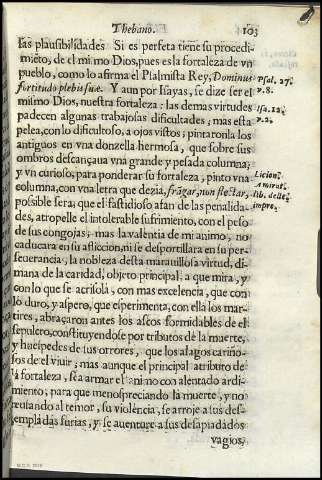 Thebano. 103
las plausibilidades Si es perfeta tiene su procedi-
miẽto, de el mismo Dios, pues es la fortaleza de vn
pueblo, como lo afirma el Psalmista Rey, Dominus
fortitudo plebis suæ. Y aun por Isayas, se dize ser el
mismo Dios, nuestra fortaleza: las demas virtudes
padecen algunas trabajosas dificultades; mas esta
pelea, con lo dificultoso, a ojos vistos; pintaronla los
antiguos en vna donzella hermosa, que sobre sus
ombros descançaua vna grande y pesada columna;
y vn curioso, para ponderar su fortaleza, pinto vna
columna, con vna letra que dezia, frãgar, non flectar,
possible sera; que el fastidioso afan de las penalida-
des, atropelle el intolerable sufrimiento, con el peso
de sus congojas; mas la valẽtia de mi animo, no
caducara en su afliccion, ni se desportillara en su per-
seuerancia, la nobleza desta marauillosa virtud, di-
mana de la caridad, objeto principal a que mira, y
con lo que se acrisola, con mas excelencia, que con
lo duro, y aspero, que esperimenta, con ella los mar-
tires, abraçaron antes los ascos formidables de el
sepulcro, constituyendose por tributos de la muerte,
y huespedes de sus orrores, que los alagos cariño-
sos de el viuir; mas aunque el principal atributo de
la fortaleza, sea armar el animo con alentado ardi-
miento; para que menospreciando la muerte, y no
reusando al temor, su violencia, se arroje a sus des-
templadas furias, y se auenture a sus desapiadados
vagios,
Psal. 27.
v. 8.
Isa. 12.
v. 2.
Licion.
Amirat.
lib. delle
impre.